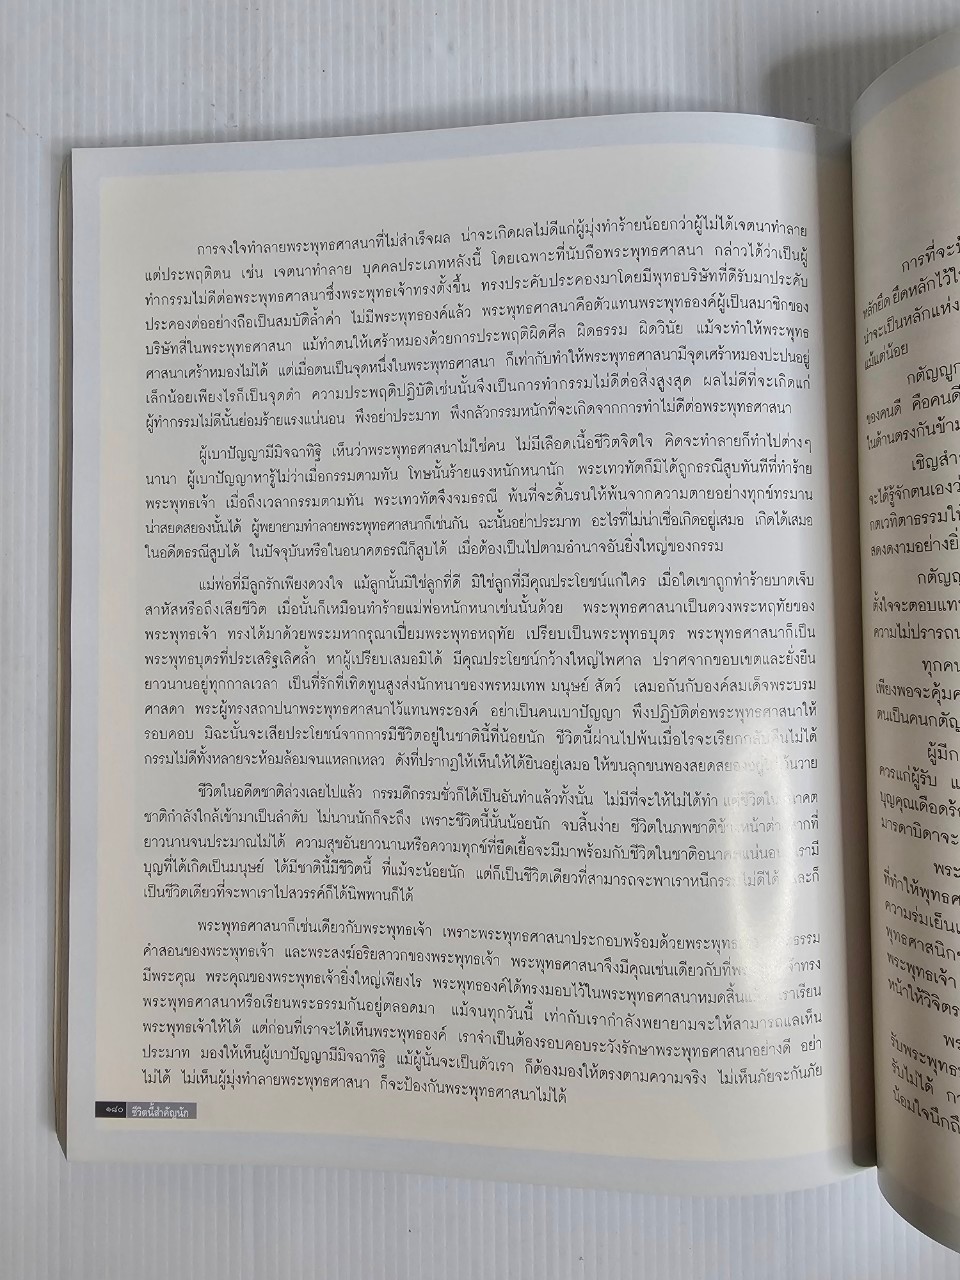 การจงใจทำลายพระพุทธศาสนาที่ไม่สำเร็จผล น่าจะเกิดผลไม่ดีแก่ผู้มุ่งทำร้ายน้อยกว่าผู้ไม่ได้เจตนาทำลาย
แต่ประพฤติตน เช่น เจตนาทำลาย บุคคลประเภทหลังนี้ โดยเฉพาะที่นับถือพระพุทธศาสนา กล่าวได้ว่าเป็นผู้
ทำกรรมไม่ดีต่อพระพุทธศาสนาซึ่งพระพุทธเจ้าทรงตั้งขึ้น ทรงประคับประคองมาโดยมีพุทธบริษัทที่ดีรับมาประคับ
ประคองต่ออย่างถือเป็นสมบัติล้ำค่า ไม่มีพระพุทธองค์แล้ว พระพุทธศาสนาคือตัวแทนพระพุทธองค์ผู้เป็นสมาชิกของ
บริษัทสี่ในพระพุทธศาสนา แม้ทำตนให้เศร้าหมองด้วยการประพฤติผิดศีล ผิดธรรม ผิดวินัย แม้จะทำให้พระพุทธ
ศาสนาเศร้าหมองไม่ได้ แต่เมื่อตนเป็นจุดหนึ่งในพระพุทธศาสนา ก็เท่ากับทำให้พระพุทธศาสนามีจุดเศร้าหมองปะปนอยู่
เล็กน้อยเพียงไรก็เป็นจุดดำ ความประพฤติปฏิบัติเช่นนั้นจึงเป็นการทำกรรมไม่ดีต่อสิ่งสูงสุด ผลไม่ดีที่จะเกิดแก่
ผู้ทำกรรมไม่ดีนั้นย่อมร้ายแรงแน่นอน พึงอย่าประมาท พึงกลัวกรรมหนักที่จะเกิดจากการทำไม่ดีต่อพระพุทธศาสนา
ผู้เบาปัญญามีมิจฉาทิฐิ เห็นว่าพระพุทธศาสนาไม่ใช่คน ไม่มีเลือดเนื้อชีวิตจิตใจ คิดจะทำลายก็ทำไปต่างๆ
นานา ผู้เบาปัญญาหารู้ไม่ว่าเมื่อกรรมตามทัน โทษนั้นร้ายแรงหนักหนานัก พระเทวทัตก็มิได้ถูกธรณีสูบทันทีที่ทำร้าย
พระพุทธเจ้า เมื่อถึงเวลากรรมตามทัน พระเทวทัตจึงจมธรณี พ้นที่จะดิ้นรนให้พ้นจากความตายอย่างทุกข์ทรมาน
น่าสยดสยองนั้นได้ ผู้พยายามทำลายพระพุทธศาสนาก็เช่นกัน ฉะนั้นอย่าประมาท อะไรที่ไม่น่าเชื่อเกิดอยู่เสมอ เกิดได้เสมอ
ในอดีตธรณีสูบได้ ในปัจจุบันหรือในอนาคตธรณีก็สูบได้ เมื่อต้องเป็นไปตามอำนาจอันยิ่งใหญ่ของกรรม
แม่พ่อที่มีลูกรักเพียงดวงใจ แม้ลูกนั้นมิใช่ลูกที่ดี มิใช่ลูกที่มีคุณประโยชน์แก่ใคร เมื่อใดเขาถูกทำร้ายบาดเจ็บ
สาหัสหรือถึงเสียชีวิต เมื่อนั้นก็เหมือนทำร้ายแม่พ่อหนักหนาเช่นนั้นด้วย พระพุทธศาสนาเป็นดวงพระหฤทัยของ
พระพุทธเจ้า ทรงได้มาด้วยพระมหากรุณาเปี่ยมพระพุทธหฤทัย เปรียบเป็นพระพุทธบุตร พระพุทธศาสนาก็เป็น
พระพุทธบุตรที่ประเสริฐเลิศล้ำ หาผู้เปรียบเสมอมิได้ มีคุณประโยชน์กว้างใหญ่ไพศาล ปราศจากขอบเขตและยั่งยืน
ยาวนานอยู่ทุกกาลเวลา เป็นที่รักที่เทิดทูนสูงส่งนักหนาของพรหมเทพ มนุษย์ สัตว์ เสมอกันกับองค์สมเด็จพระบรม
ศาสดา พระผู้ทรงสถาปนาพระพุทธศาสนาไว้แทนพระองค์ อย่าเป็นคนเบาปัญญา พึงปฏิบัติต่อพระพุทธศาสนาให้
รอบคอบ มิฉะนั้นจะเสียประโยชน์จากการมีชีวิตอยู่ในชาตินี้ที่น้อยนัก ชีวิตนี้ผ่านไปพ้นเมื่อไรจะเรียกกลับคืนไม่ได้
กรรมไม่ดีทั้งหลายจะห้อมล้อมจนแหลกเหลว ดังที่ปรากฏให้เห็นให้ได้ยินอยู่เสมอ ให้ขนลุกขนพองสยดสยอง
ชีวิตในอดีตชาติล่วงเลยไปแล้ว กรรมดีกรรมชั่วก็ได้เป็นอันทำแล้วทั้งนั้น ไม่มีที่จะให้ไม่ได้ทำ แต่ชีวิตในอนาคต
ชาติกำลังใกล้เข้ามาเป็นลำดับ ไม่นานนักก็จะถึง เพราะชีวิตนี้นั้นน้อยนัก จบสิ้นง่าย ชีวิตในภพชาติข้างหน้าต่างหากที่
ยาวนานจนประมาณไม่ได้ ความสุขอันยาวนานหรือความทุกข์ที่ยืดเยื้อจะมีมาพร้อมกับชีวิตในชาติอนาคตแน่นอน เรามี
บุญที่ได้เกิดเป็นมนุษย์ ได้มีชาตินี้มีชีวิตนี้ ที่แม้จะน้อยนัก แต่ก็เป็นชีวิตเดียวที่สามารถจะพาเราหนีกรรมไม่ดีได้ และก็
เป็นชีวิตเดียวที่จะพาเราไปสวรรค์ก็ได้นิพพานก็ได้
พระพุทธศาสนาก็เช่นเดียวกับพระพุทธเจ้า เพราะพระพุทธศาสนาประกอบพร้อมด้วยพระพุทธเจ้า พระธรรม
คำสอนของพระพุทธเจ้า และพระสงฆ์อริยสาวกของพระพุทธเจ้า พระพุทธศาสนาจึงมีคุณเช่นเดียวกับที่พระพุทธเจ้าทรง
มีพระคุณ พระคุณของพระพุทธเจ้ายิ่งใหญ่เพียงไร พระพุทธองค์ได้ทรงมอบไว้ในพระพุทธศาสนาหมดสิ้นแล้ว เราเรียน
พระพุทธศาสนาหรือเรียนพระธรรมกันอยู่ตลอดมา แม้จนทุกวันนี้ เท่ากับเรากำลังพยายามจะให้สามารถแลเห็น
พระพุทธเจ้าให้ได้ แต่ก่อนที่เราจะได้เห็นพระพุทธองค์ เราจำเป็นต้องรอบคอบระวังรักษาพระพุทธศาสนาอย่างดี อย่า
ประมาท มองให้เห็นผู้เบาปัญญามีมิจฉาทิฐิ แม้ผู้นั้นจะเป็นตัวเรา ก็ต้องมองให้ตรงตามความจริง ไม่เห็นภัยจะกันภัย
ไม่ได้ ไม่เห็นผู้มุ่งทำลายพระพุทธศาสนา ก็จะป้องกันพระพุทธศาสนาไม่ได้
๑๘๐ ชีวิตนี้สำคัญนัก
การที่จะ
หลักยึด ยึดหลักไว้ใ
น่าจะเป็นหลักแห่ง
แม้แต่น้อย
กตัญญู
ของคนดี คือคนดี
ในด้านตรงกันข้าม
เชิญสำ
จะได้รู้จักตนเองว
กตเวทิตาธรรมให้
สดงดงามอย่างยิ
กตัญญ
ตั้งใจจะตอบแทน
ความไม่ปรารถน
ทุกคน
เพียงพอจะคุ้มค
ตนเป็นคนกตัญ
ผู้มีก
ควรแก่ผู้รับ แ
บุญคุณเดือดร้
มารดาบิดาจะ
พระ
ที่ทำให้พุทธศ
ความร่มเย็น
พุทธศาสนิก
พระพุทธเจ้า
หน้าให้วิจิตร
พร
รับพระพุทธ
รับไม่ได้ กา
น้อมใจนึกถึ